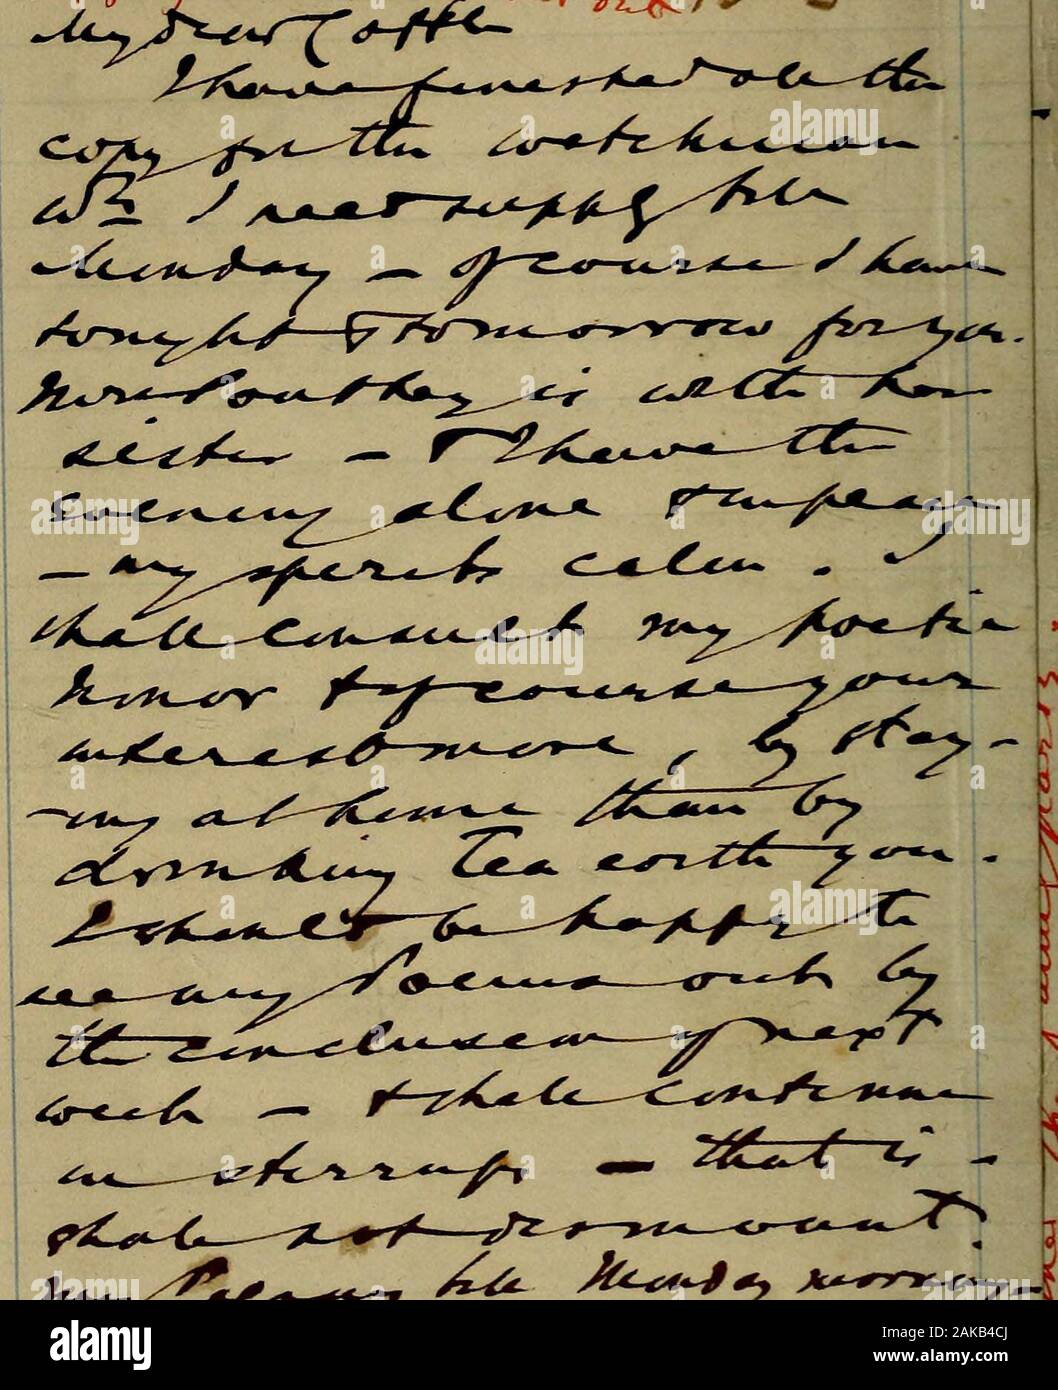 My dear Cottle
I have finished all the
copy for the watchman
wch I need supply till
Monday - of course I have
tonight & tomorrow for you.
Mrs Southey is with her
sister - & I have the
evening alone & in peace
- my spirits calm. I
shall consult my poetic
honor & of course your
interest more, by stay-
-ing at home than by
drinking Tea with you.
I should be happy to
see my Poems out by
the conclusion of next
week - & shall continue
in stirrups - that is -
shall not dismount
my Pegasus till Monday morning
alamy
Image ID: 2AKB4CJ
www.alamy.com